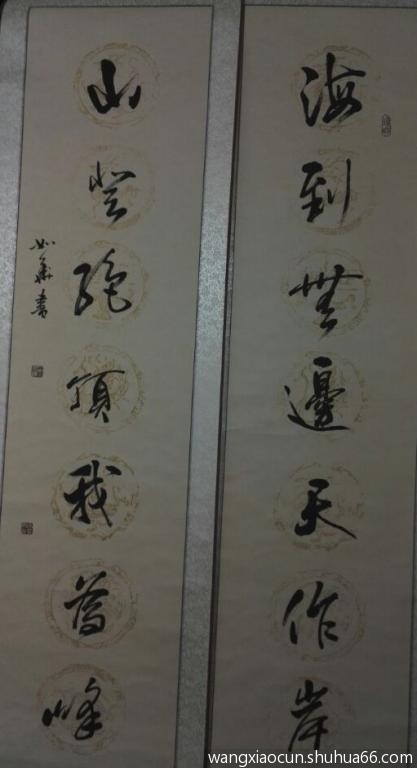 海到無邊天作岸
山登絕頂我為峰
書
wangxiaocun.shuhua66.com